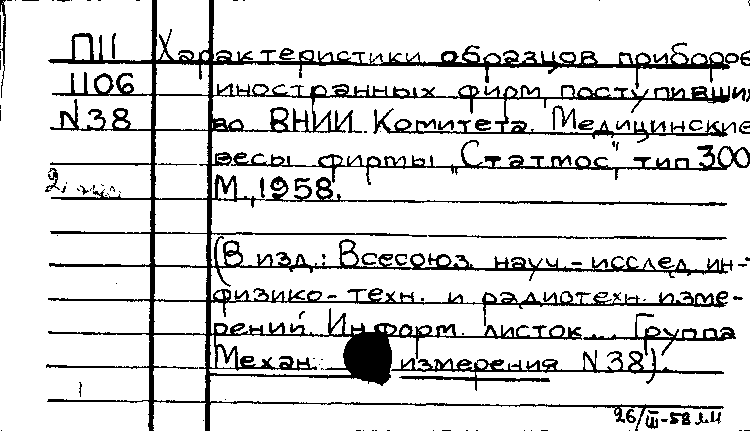 П11 Характеристики образцов приборов
1106 иностранных фирм, поступивши
N38 во ВНИИ Комитета. Медицинские
весы фирмы „Статмос", тип 300
М., 1958.
(В изд.: Всесоюз. науч.-исслед. ин-т
физико-техн. и радиотехн. изме-
рений. Информ. листок... Группа
Механ. измерения N38).
26/III-58